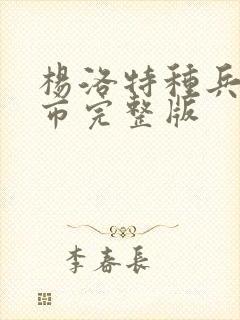 楊洛特種兵
市完整版
李春長